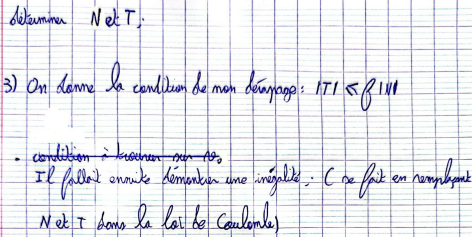 déterminer N et T;
3) On donne la condition de non dérapage : |T| ≤ f |N|
• condition à trouver sur v₀
Il fallait ensuite démontrer une inégalité; C se fait en remplaçant
N et T dans la loi de Coulombe)